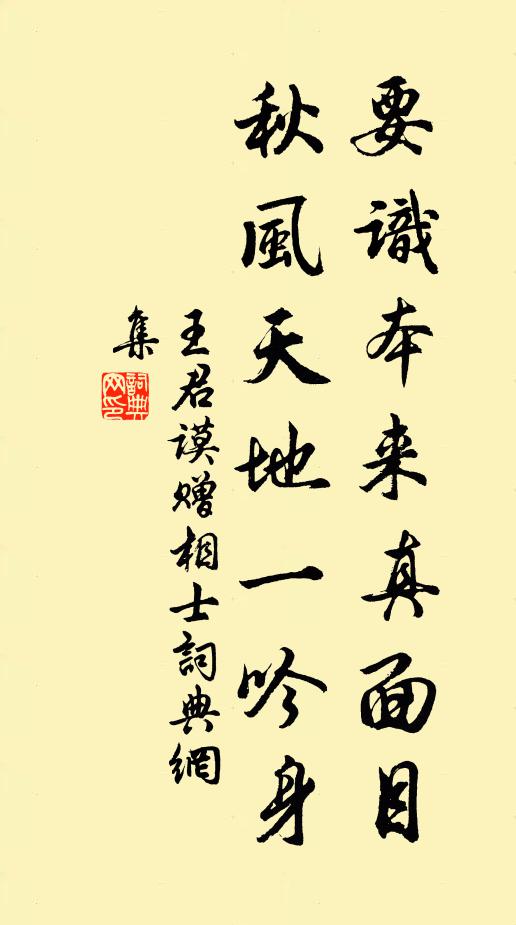 要識本来真面目
秋風天地一吟身
王君謨贈相士詞典網
集
詞典
网印